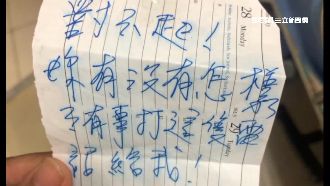 三立新聞網
對不起!
有沒有怎樣
?有事打這隻電
話給我!
28
Monday
29
Tuesday